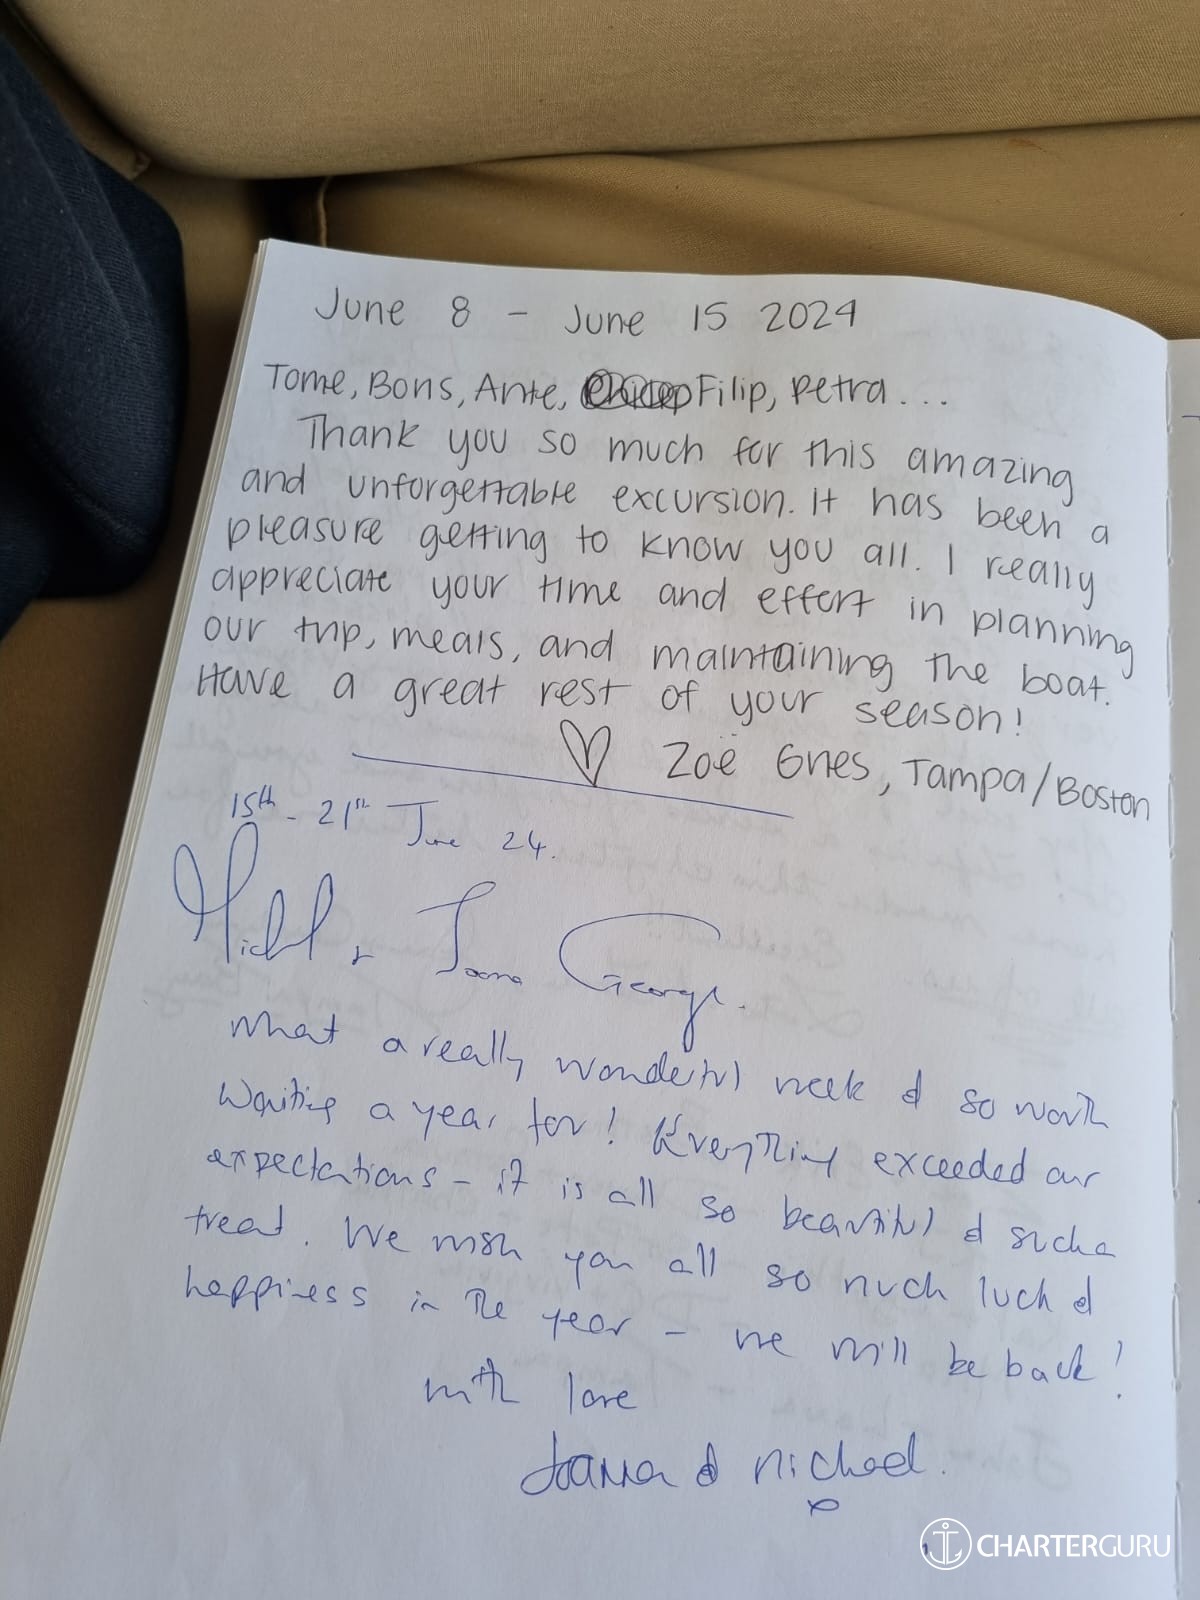 June 8 - June 15 2024
Tome, Boris, Ante, Filip, Petra...
Thank you so much for this amazing
and unforgettable excursion. It has been a
pleasure getting to know you all. I really
appreciate your time and effort in planning
our trip, meals, and maintaining the boat.
Have a great rest of your season!
♡ Zoë Gries, Tampa/Boston
15th - 21st June 24.
Michael & Joanna George.
What a really wonderful week & so worth
waiting a year for! Everything exceeded our
expectations - it is all so beautiful & such a
treat. We wish you all so much luck &
happiness in the year - we will be back!
with love
Joanna & Michael.
x
CHARTERGURU